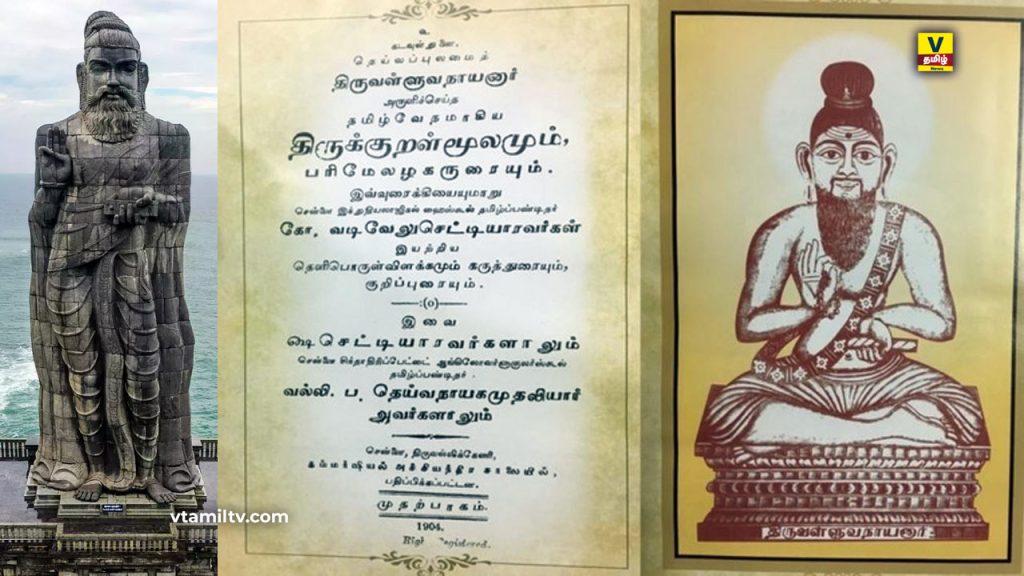 உ
கடவுள் துணை.
தெய்வப்புலமைத்
திருவள்ளுவநாயனார்
அருளிச்செய்த
தமிழ்வேதமாகிய
திருக்குறள்மூலமும்,
பரிமேலழகருரையும்.
இவ்வுரைக்கியையுமாறு
சென்னை இந்துதியலாஜிகல் ஹைஸ்கூல் தமிழ்ப்பண்டிதர்
கோ. வடிவேலுசெட்டியாரவர்கள்
இயற்றிய
தெளிபொருள்விளக்கமும் கருத்துரையும்,
குறிப்புரையும்.
இவை
செட்டியாரவர்களாலும்
சென்னை சிந்தாதிரிப்பேட்டை ஆங்கிலோவர்னாகுலர்ஸ்கூல்
தமிழ்ப்பண்டிதர்
வல்லி. ப. தெய்வநாயகமுதலியார்
அவர்களாலும்
சென்னை, திருவல்லிக்கேணி,
கம்மர்ஷியல் அச்சியந்திர சாலையில்,
பதிப்பிக்கப்பட்டன.
முதற்பாகம்.
1904.
திருவள்ளுவநாயனார்
V
தமிழ்
News
vtamiltv.com